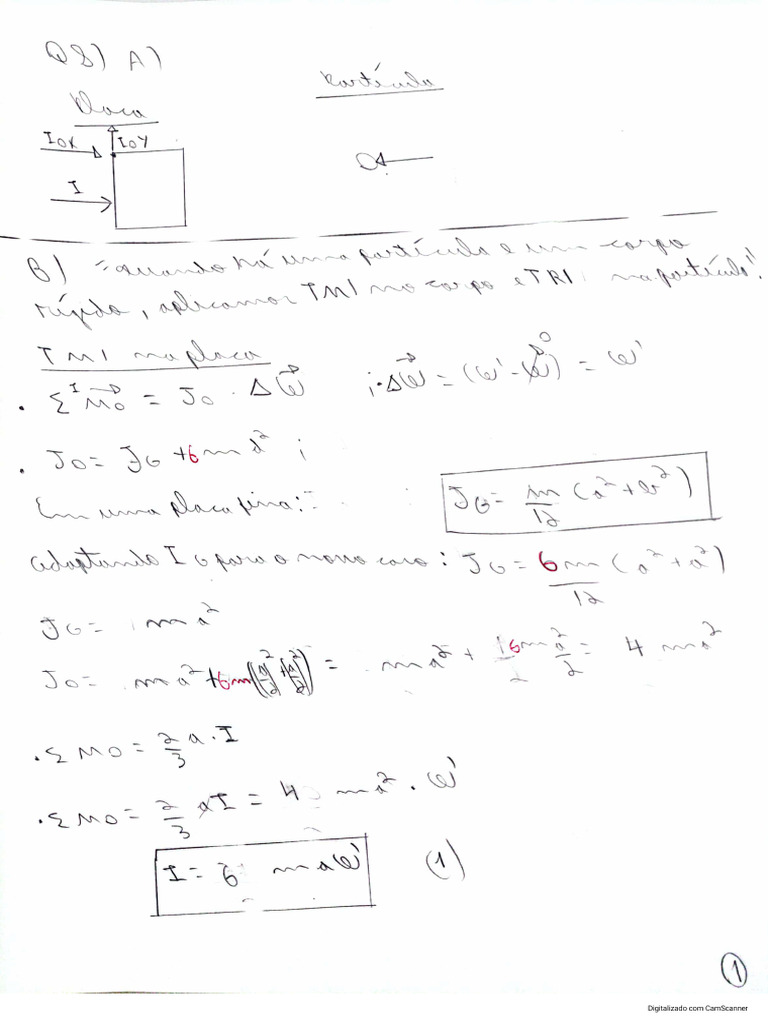 Q8) A)
Placa
Partícula
I0X
I0Y
I
B) "Quando há uma partícula e um corpo
rígido, aplicamos TMI no corpo e TRI na partícula".
TMI na placa
• Σ I M⃗o = Jo · Δω⃗ ; · Δω⃗ = (ω' - ω) = ω'
0
• Jo = JG + 6md² ;
Em uma placa fina: JG = m/12 (a² + b²)
adaptando IG para o nosso caso: JG = 6m/12 (a² + a²)
JG = ma²
Jo = ma² + 6m((a/2)² + (a/2)²) = ma² + 6ma²/2 = 4 ma²
• Σ Mo = 2/3 a · I
• Σ Mo = 2/3 aI = 4 ma² · ω'
I = 6 maω' (1)
1
Digitalizado com CamScanner